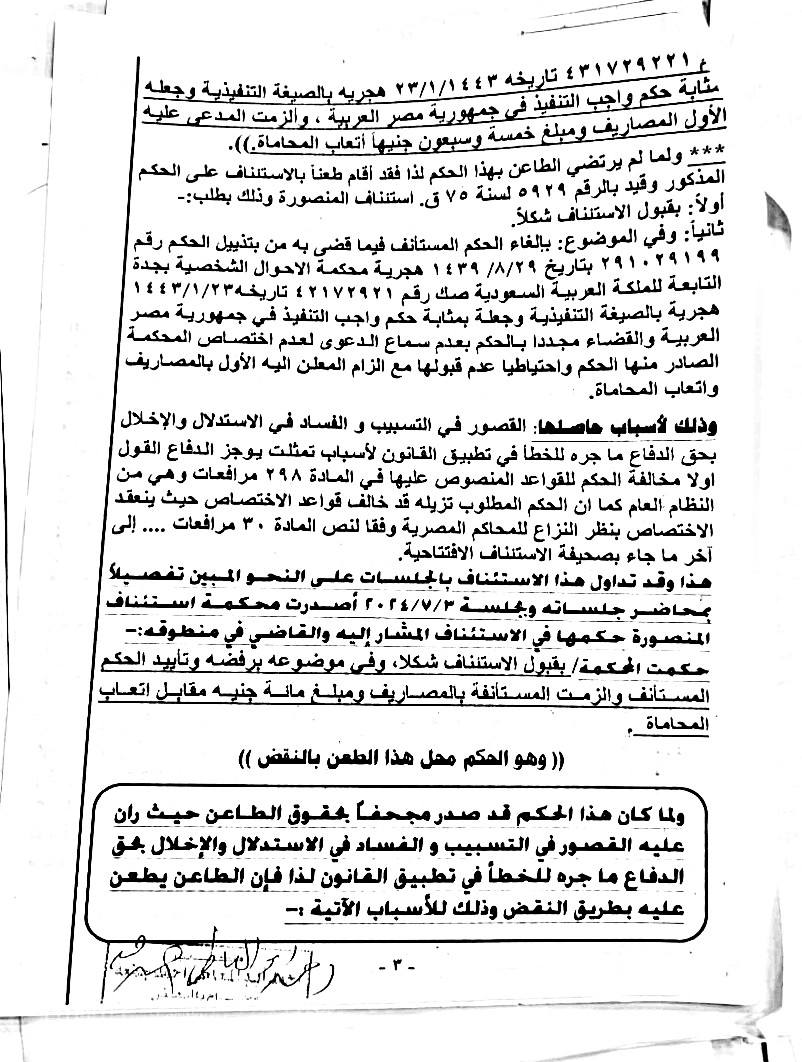 ٤٣١٧٢٩٢٢١ تاريخه ٢٣/١/١٤٤٣ هجريه بالصيغة التنفيذية وجعله
مثابة حكم واجب التنفيذ في جمهورية مصر العربية ، والزمت المدعى عليه
الأول المصاريف ومبلغ خمسة وسبعون جنيهاً أتعاب المحاماة.)).
*** ولما لم يرتضي الطاعن بهذا الحكم لذا فقد أقام طعناً بالاستئناف على الحكم
المذكور وقيد بالرقم ٥٩٢٩ لسنة ٧٥ ق. استئناف المنصورة وذلك بطلب:-
أولاً: بقبول الاستئناف شكلاً.
ثانياً: وفي الموضوع: بالغاء الحكم المستأنف فيما قضى به من بتذييل الحكم رقم
٢٩١٠٢٩١٩٩ بتاريخ ١٤٣٩/٨/٢٩ هجرية محكمة الاحوال الشخصية بجدة
التابعة للملكة العربية السعودية صك رقم ٤٢١٧٢٩٢١ تاريخه١٤٤٣/١/٢٣
هجرية بالصيغة التنفيذية وجعلة بمثابة حكم واجب التنفيذ في جمهورية مصر
العربية والقضاء مجددا بالحكم بعدم سماع الدعوى لعدم اختصاص المحكمة
الصادر منها الحكم واحتياطيا عدم قبولها مع الزام المعلن اليه الأول بالمصاريف
واتعاب المحاماة.
وذلك لأسباب حاصلها: القصور في التسبيب و الفساد في الاستدلال والإخلال
بحق الدفاع ما جره للخطأ في تطبيق القانون لأسباب تمثلت يوجز الدفاع القول
اولا مخالفة الحكم للقواعد المنصوص عليها في المادة ٢٩٨ مرافعات وهي من
النظام العام كما ان الحكم المطلوب تزيله قد خالف قواعد الاختصاص حيث ينعقد
الاختصاص بنظر النزاع للمحاكم المصرية وفقا لنص المادة ٣٠ مرافعات .... إلى
آخر ما جاء بصحيفة الاستئناف الافتتاحية.
هذا وقد تداول هذا الاستئناف بالجلسات على النحو المبين تفصيلاً
بمحاضر جلساته وبجلسة ٢٠٢٤/٧/٣ أصدرت محكمة استئناف
المنصورة حكمها في الاستئناف المشار إليه والقاضي في منطوقه:-
حكمت المحكمة/ بقبول الاستئناف شكلا، وفي موضوعه برفضه وتأييد الحكم
المستأنف والزمت المستأنفة بالمصاريف ومبلغ مائة جنيه مقابل اتعاب
المحاماة .
(( وهو الحكم محل هذا الطعن بالنقض ))
ولما كان هذا الحكم قد صدر مجحفاً بحقوق الطاعن حيث ران
عليه القصور في التسبيب و الفساد في الاستدلال والإخلال بحق
الدفاع ما جره للخطأ في تطبيق القانون لذا فإن الطاعن يطعن
عليه بطريق النقض وذلك للأسباب الآتية :-
- ٣ -